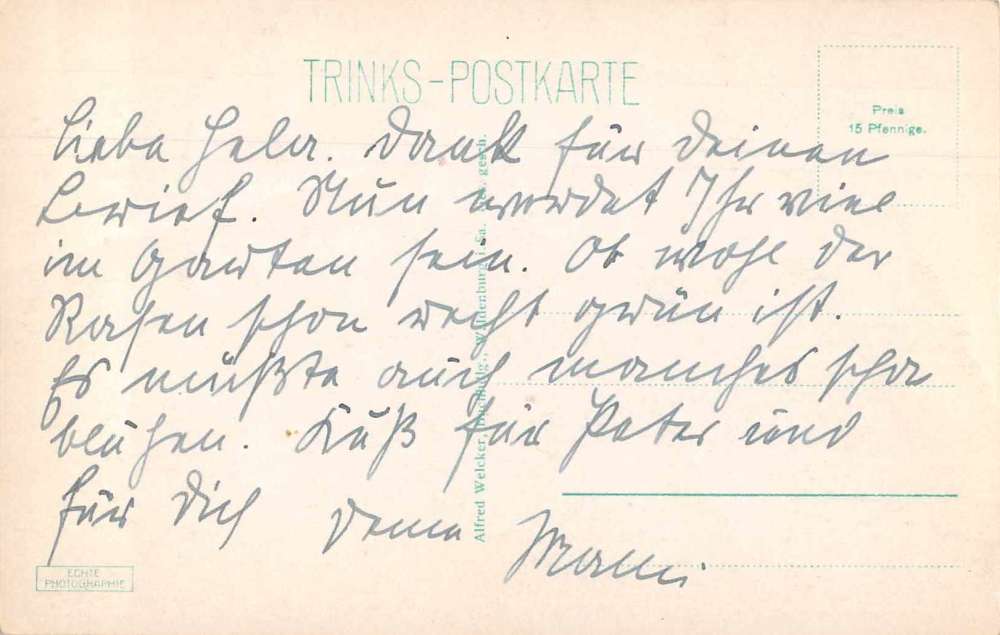 TRINKS-POSTKARTE
Preis
15 Pfennige.
Liebe Hela. Dank für Deinen
Brief. Nun werdet Ihr viel
im Garten sein. Ob wohl der
Rasen schon recht grün ist.
Es müßte auch manches scho
blühen. Kuß für Peter und
für Dich Deine
Alfred Welcker, Waldenburg i. Sa. Ges. gesch.
ECHTE
PHOTOGRAPHIE